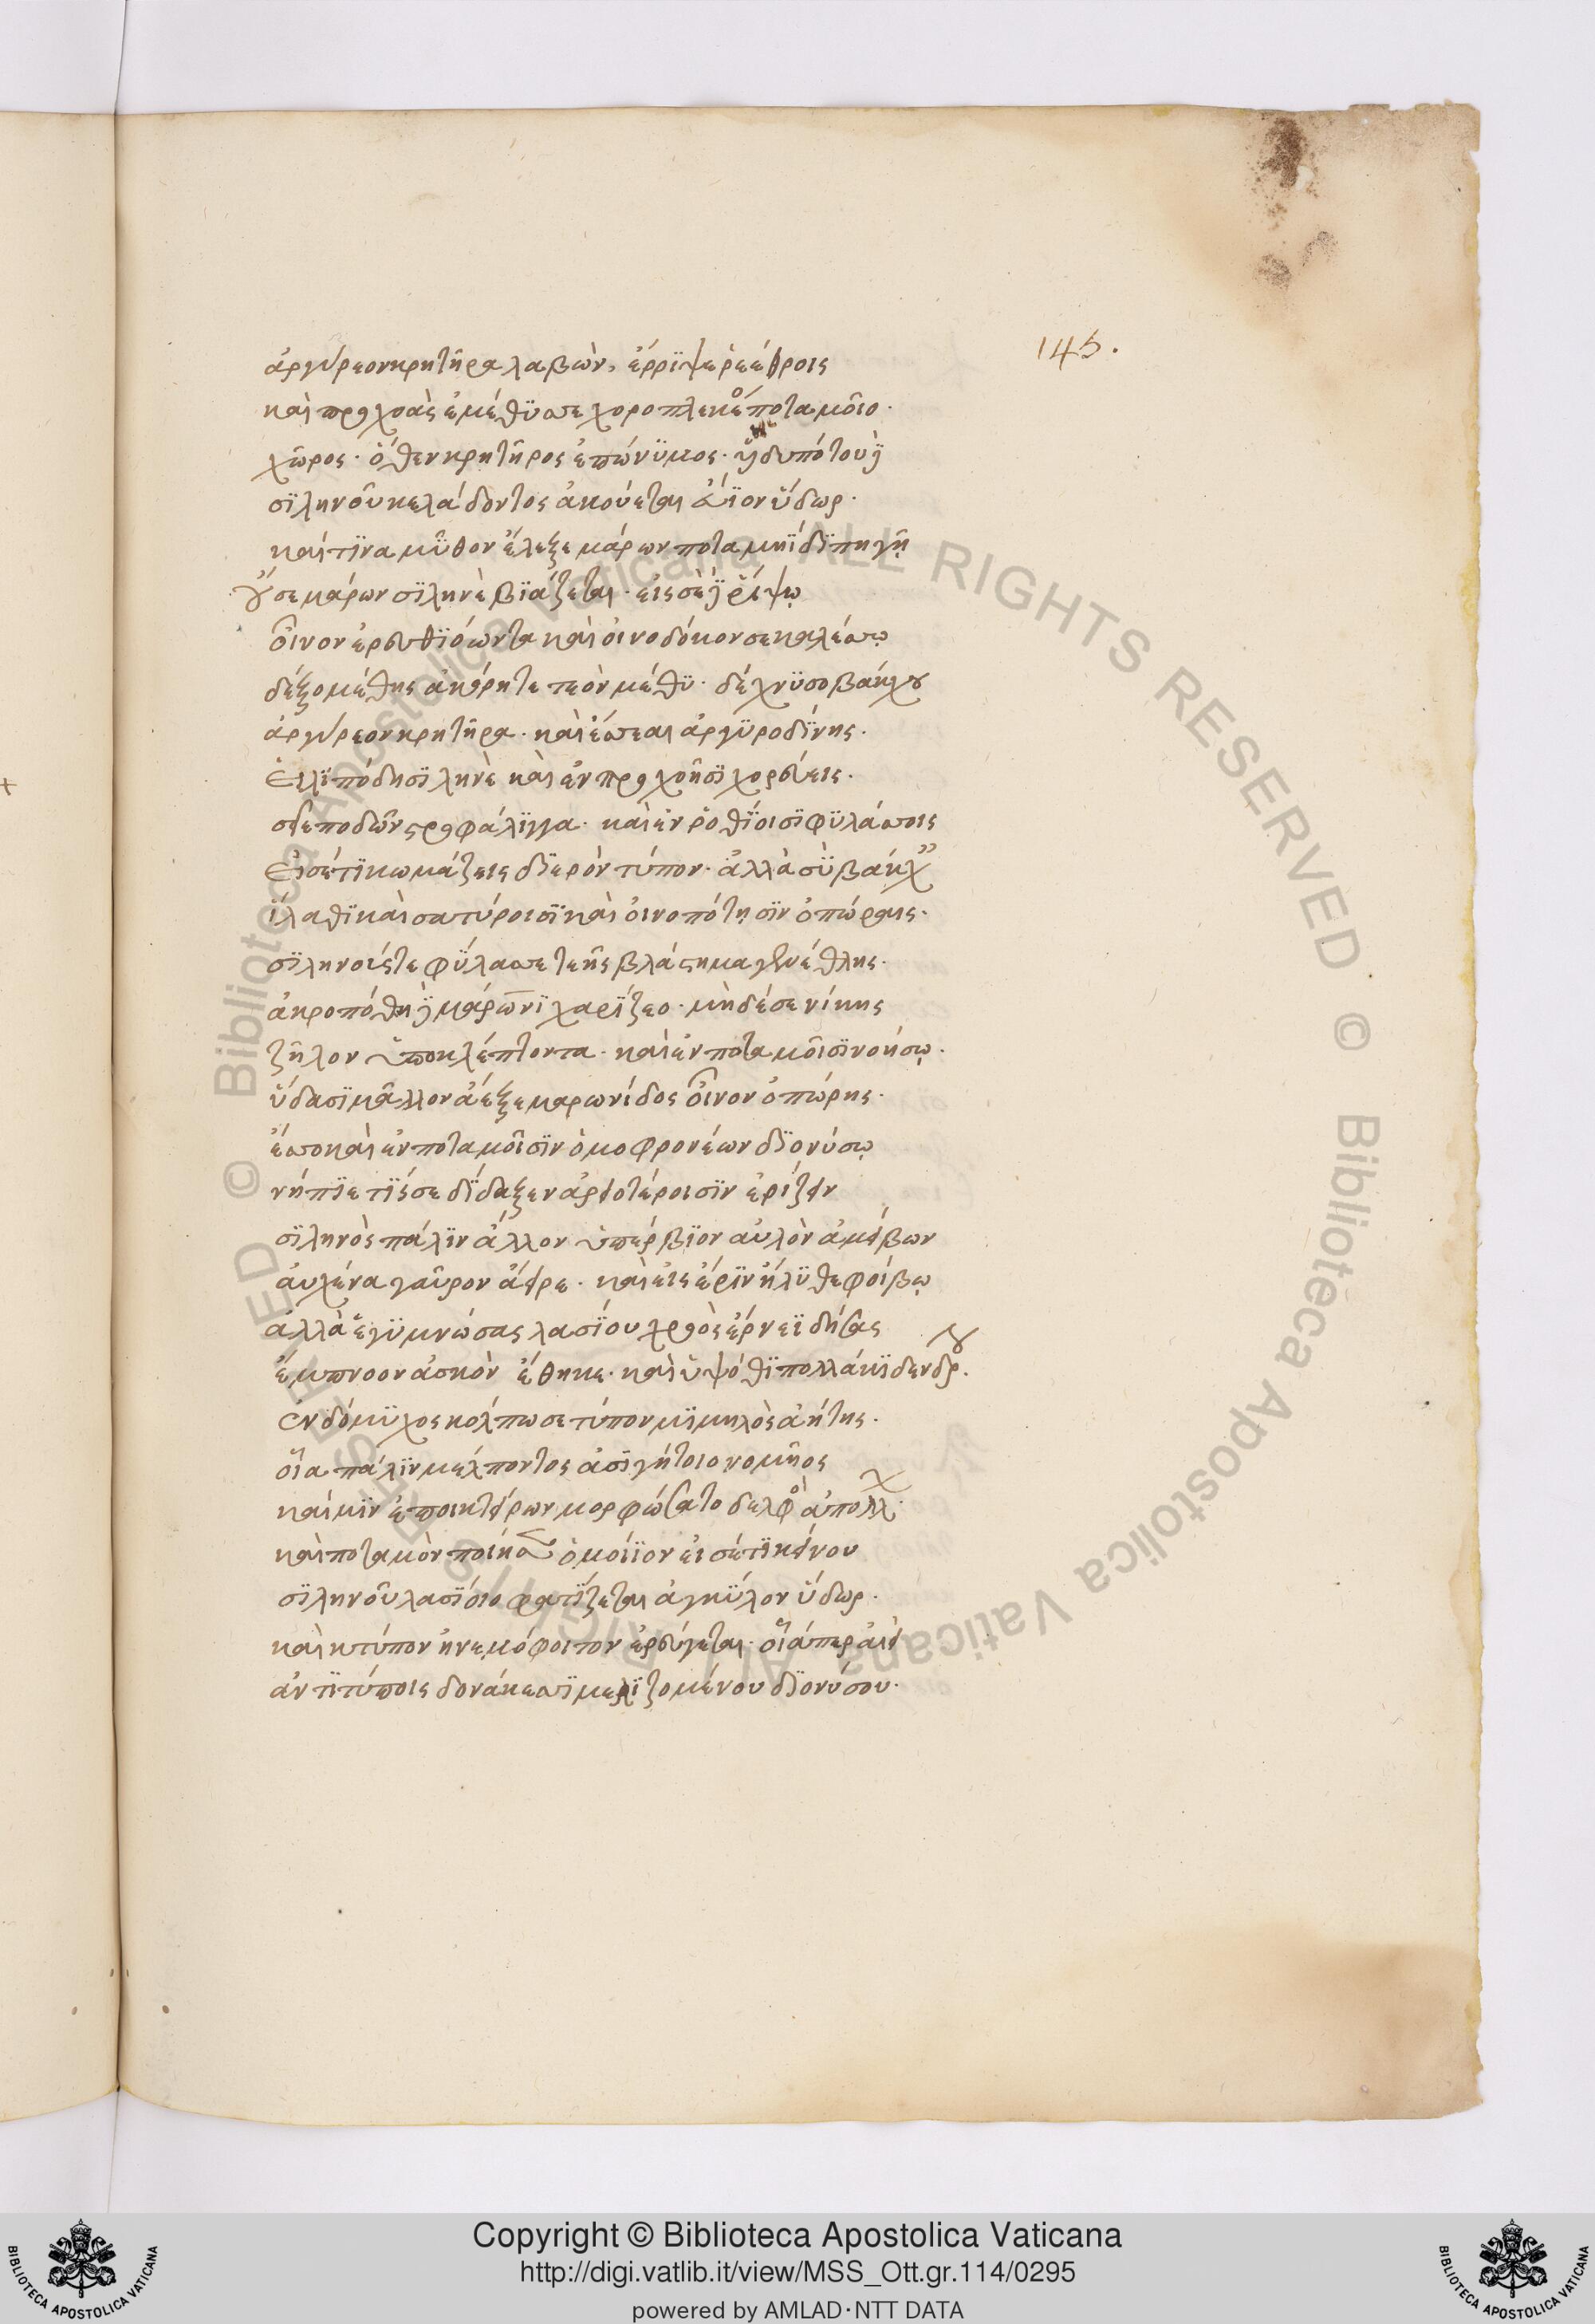 145.
ἀργύρεον κρητῆρα λαβὼν, ἔρριψε ῥεέθροις
καὶ προχοὰς ἐμέθυσσε χοροπλεκέος ποταμοῖο.
χῶρος. ὅθεν κρητῆρος ἐπώνυμος. ἡδυπότου δὲ
σιληνοῦ κελάδοντος ἀκούεται εὔϊον ὕδωρ.
καί τινα μῦθον ἔλεξε μάρων ποταμηΐδι πηγῇ
οὔ σε μάρων σιληνὲ βιάζεται. εἰς σὲ δὲ ῥίψω
οἶνον ἐρευθιόωντα καὶ οἰνοδόκον σε καλέσσω
δέξο μέθης ἀκόρητε τεὸν μέθυ. δέχνυσο βάκχου
ἀργύρεον κρητῆρα. καὶ ἔσσεαι ἀργυροδίνης.
εἰλιπόδη σιληνὲ καὶ ἐν προχοῇσι χορεύεις.
σεῖο ποδῶν στροφάλιγγα. καὶ ἐν ῥοθίοισι φυλάσσεις
εἰσέτι κωμάζεις διερὸν τύπον. ἀλλὰ σὺ βάκχου
ἵλαθι καὶ σατύροισι καὶ οἰνοπότῃσιν ὀπώραις.
σιληνούς τε φύλασσε τεῆς βλάστημα γενέθλης.
ἀκροπότῃ δὲ μάρωνι χαρίζεο. μὴ δέ σε νίκης
ζῆλον ὑποκλέπτοντα. καὶ ἐν ποταμοῖσι νοήσω.
ὕδασι μᾶλλον ἄεξε μαρωνίδος οἶνον ὀπώρης.
ἔσσο καὶ ἐν ποταμοῖσιν ὁμοφρονέων διονύσῳ
νήπιε τίς σε δίδαξεν ἀρειοτέροισιν ἐρίζειν
σιληνὸς πάλιν ἄλλον ὑπέρβιον αὐλὸν ἀμείβων
αὐχένα γαῦρον ἄειρε. καὶ εἰς ἔριν ἤλυθε φοίβῳ
ἀλλὰ ἑ γυμνώσας λασίου χροὸς ἔρνεϊ δήσας
ἔμπνοον ἀσκὸν ἔθηκε. καὶ ὑψόθι πολλάκι δένδρου.
ἐνδόμυχος κολπώσε τύπον μιμηλὸς ἀήτης.
οἷα πάλιν μέλποντος ἀσιγήτοιο νομῆος
καί μιν ἐποικτείρων μορφώσατο δελφὸς ἀπόλλων
καὶ ποταμὸν ποίησεν ὁμοίϊον εἰσέτι κείνου
σιληνοῦ λασίοιο φατίζεται ἀγκύλον ὕδωρ.
καὶ κτύπον ἠνεμόφοιτον ἐρεύγεται. οἷά περ αἰεὶ
ἀντιτύποις δονάκεσσι μελιζομένου διονύσου.
Copyright © Biblioteca Apostolica Vaticana
http://digi.vatlib.it/view/MSS_Ott.gr.114/0295
powered by AMLAD·NTT DATA